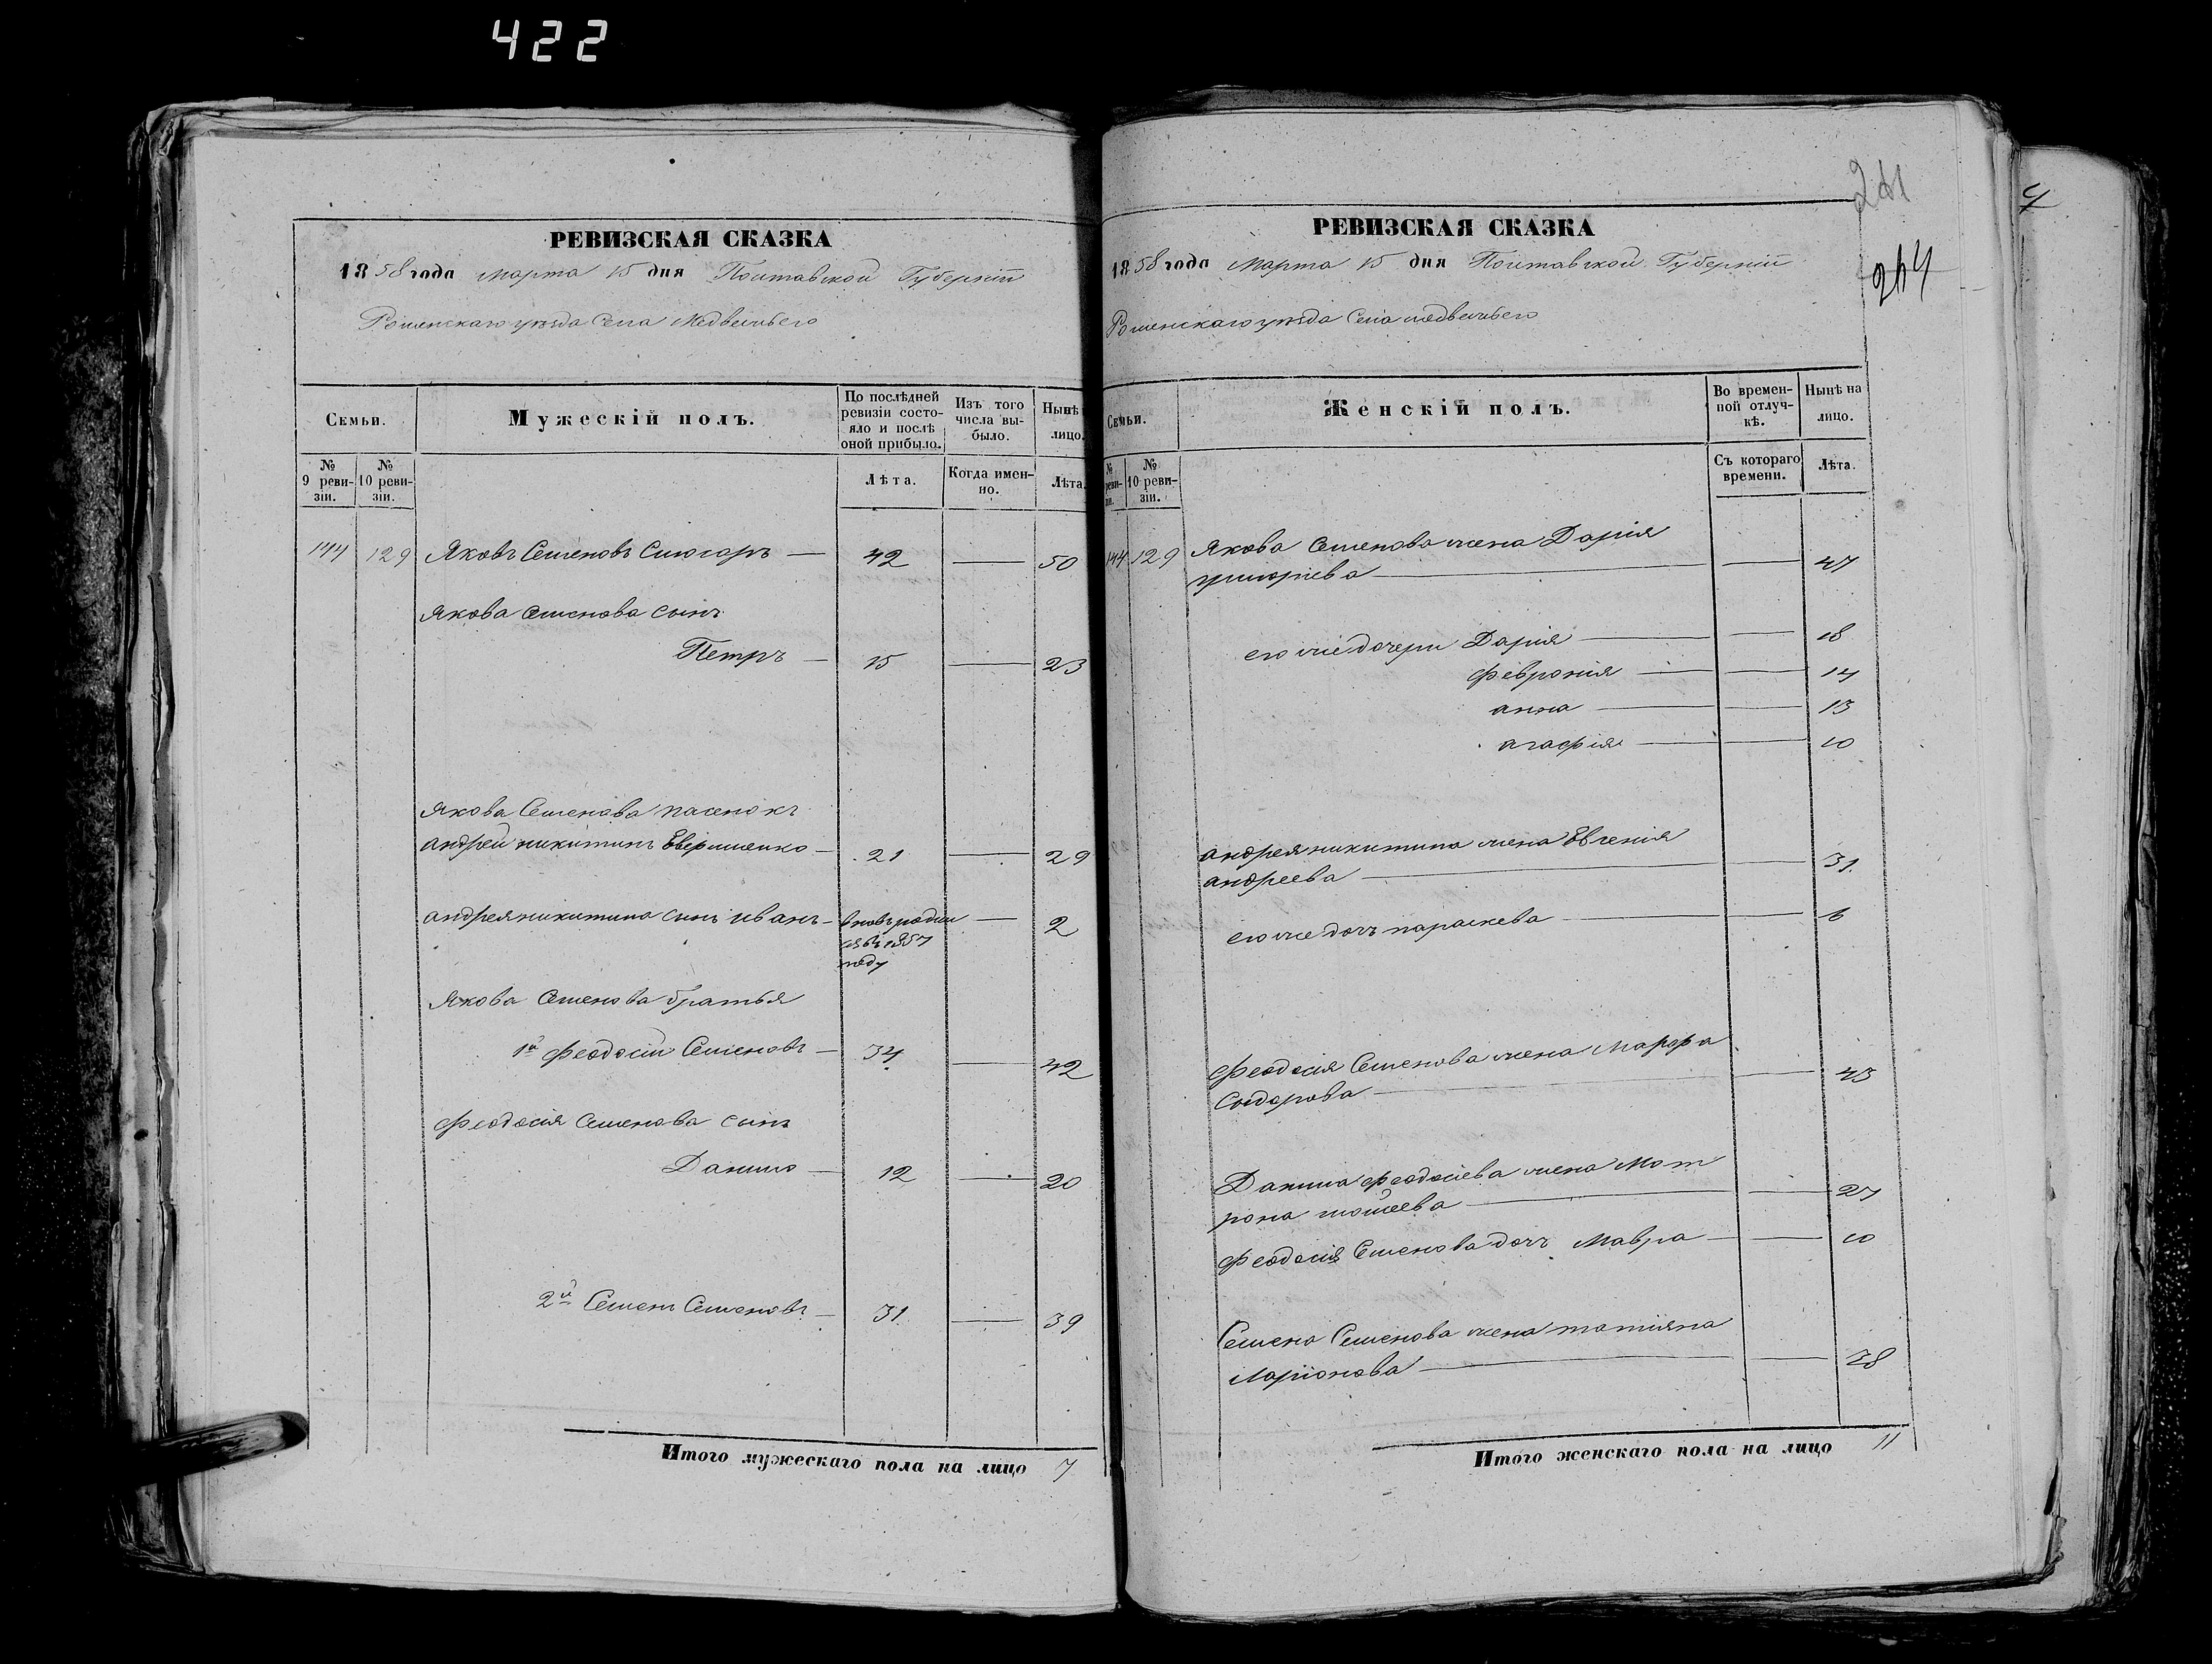 422
РЕВИЗСКАЯ СКАЗКА
1858 года Марта 15 дня Полтавской Губернiи
Роменскаго уезда Села Медвежьего
Семьи.
Мужескiй полъ.
По послѣдней ревизiи состояло и послѣ оной прибыло.
Изъ того числа выбыло.
Нынѣ
лицо.
№ 9 ревизiи.
№ 10 ревизiи.
Лѣта.
Когда именно.
Лѣта.
144 129 Яковъ Семеновъ Слюсаръ — 42 — 50
Якова Семенова сынъ
Петръ — 15 — 23
Якова Семенова пасенокъ
андрей никитинъ — 21 — 29
андрея никитина сынъ иванъ — вновь родил
ся въ 1857 — 2
году
Якова Семенова братья
1й феодосiй Семеновъ — 34 — 42
феодосiя Семенова сынъ
Данило — 12 — 20
2й Семенъ Семеновъ — 31 — 39
Итого мужескаго пола на лицо 7
241
244
РЕВИЗСКАЯ СКАЗКА
1858 года Марта 15 дня Полтавской Губернiи
Роменскаго уезда Села медвежьего
Семьи.
Женскiй полъ.
Во временной отлучкѣ.
Нынѣ на лицо.
№ реви-
№ 10 ревизiи.
Съ котораго времени.
Лѣта.
144 129 Якова Семенова жена Дарiя
григорiева — — 47
его же дочери Дарiя — — 18
феврониiя — — 14
анна — — 13
агафiя — — 10
андрея никитина жена Евгенiя
андреева — — 31
его же дочь параскева — — 6
феодосiя Семенова жена Марфа
Сидорова — — 43
Данила феодосiева жена Мот
рона мойсеева — — 27
феодосiя Семенова дочь Мавра — — 10
Семена Семенова жена татiяна
Ларiонова — — 38
Итого женскаго пола на лицо 11